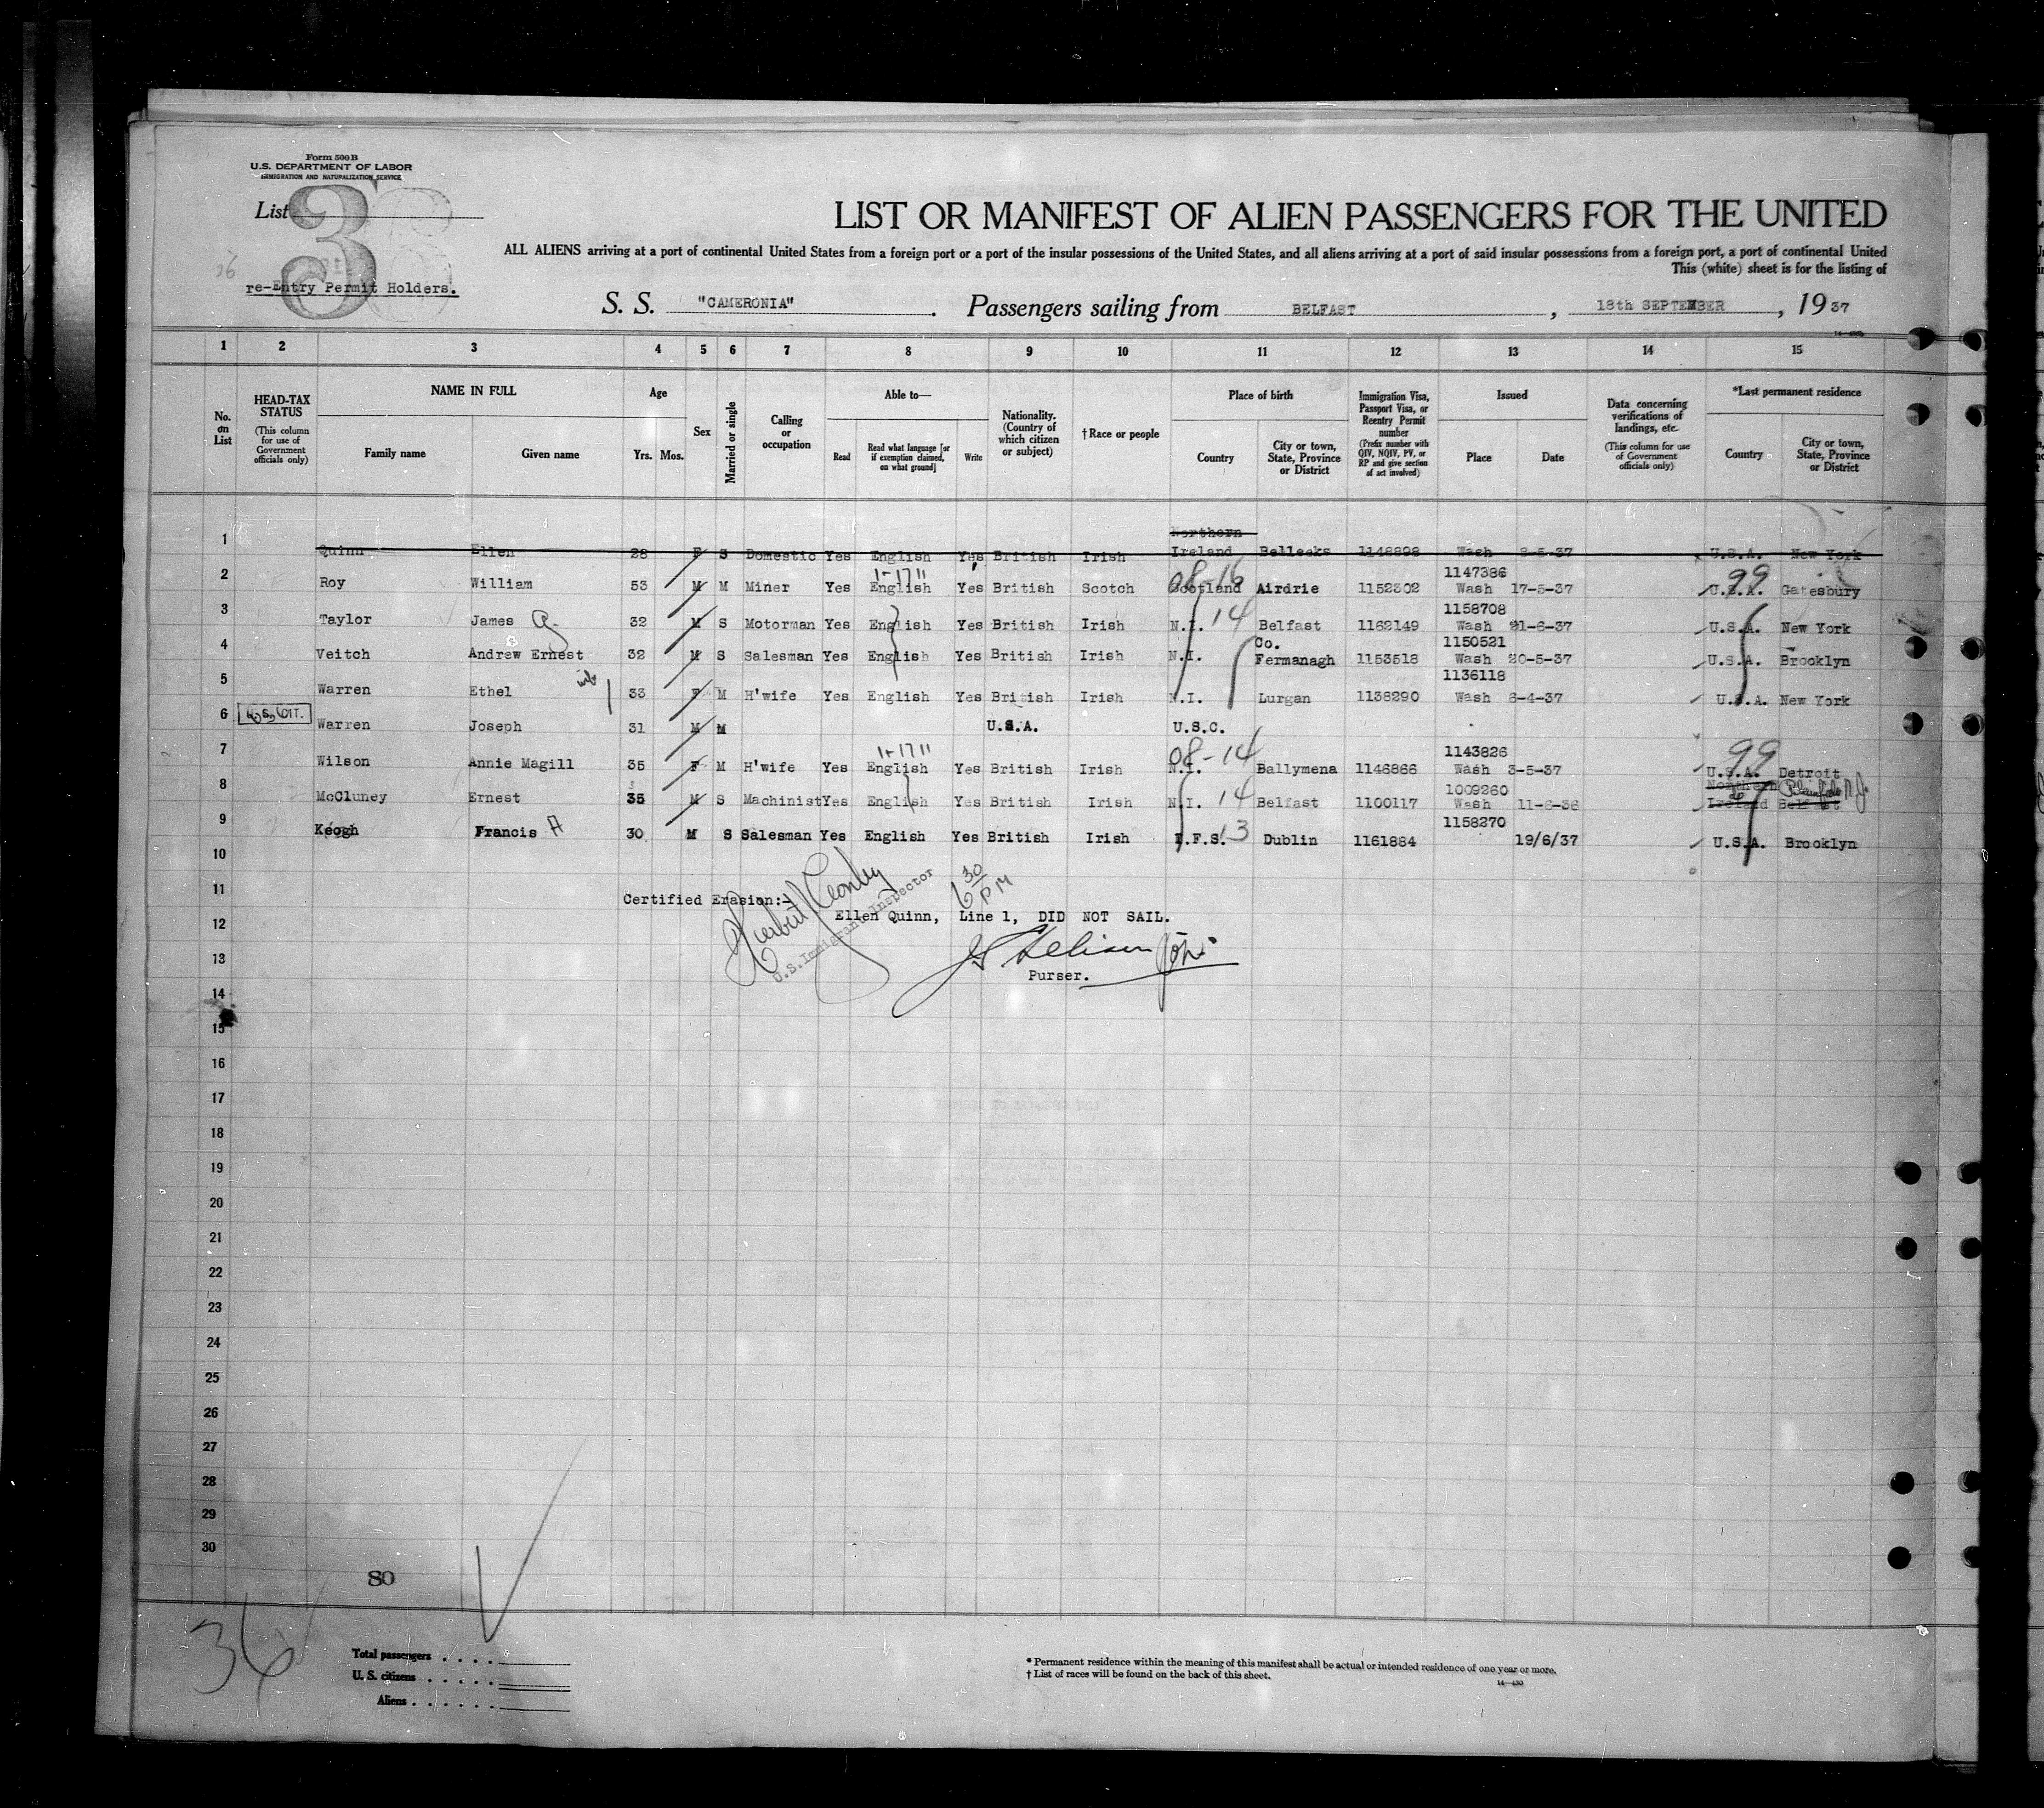 Form 500 B
U.S. DEPARTMENT OF LABOR
IMMIGRATION AND NATURALIZATION SERVICE
List 3
LIST OR MANIFEST OF ALIEN PASSENGERS FOR THE UNITED
ALL ALIENS arriving at a port of continental United States from a foreign port or a port of the insular possessions of the United States, and all aliens arriving at a port of said insular possessions from a foreign port, a port of continental United
This (white) sheet is for the listing of
re-Entry Permit Holders.
S. S. "CAMERONIA". Passengers sailing from BELFAST, 18th SEPTEMBER, 1937
1 2 3 4 5 6 7 8 9 10 11 12 13 14 15
No. on List
HEAD-TAX STATUS (This column for use of Government officials only)
NAME IN FULL Family name Given name
Age Yrs. Mos.
Sex
Married or single
Calling or occupation
Able to— Read Read what language [or if exemption claimed, on what ground] Write
Nationality. (Country of which citizen or subject)
†Race or people
Place of birth Country City or town, State, Province or District
Immigration Visa, Passport Visa, or Reentry Permit number (Prefix number with QIV, NQIV, PV, or RP and give section of act involved)
Issued Place Date
Data concerning verifications of landings, etc. (This column for use of Government officials only)
*Last permanent residence Country City or town, State, Province or District
Northern
1 Quinn Ellen 28 F S Domestic Yes English Yes British Irish Ireland Belleeks 1148898 Wash 8-5-37 U.S.A. New York
08-16 1147386 99
2 Roy William 53 M M Miner Yes English Yes British Scotch Scotland Airdrie 1152302 Wash 17-5-37 U.S.A. Gatesbury
1158708
3 Taylor James 32 M S Motorman Yes English Yes British Irish N.I. 14 Belfast 1162149 Wash 21-6-37 U.S.A. New York
Co. 1150521
4 Veitch Andrew Ernest 32 M S Salesman Yes English Yes British Irish N.I. Fermanagh 1153518 Wash 20-5-37 U.S.A. Brooklyn
1136118
5 Warren Ethel 33 F M H'wife Yes English Yes British Irish N.I. Lurgan 1138290 Wash 6-4-37 U.S.A. New York
6 Warren Joseph 31 M M U.S.A. U.S.C.
08-14 1143826 99
7 Wilson Annie Magill 35 F M H'wife Yes English Yes British Irish N.I. Ballymena 1146866 Wash 3-5-37 U.S.A. Detroit
1009260 Northern Plainfield N.J.
8 McCluney Ernest 35 M S Machinist Yes English Yes British Irish N.I. 14 Belfast 1100117 Wash 11-6-36 Ireland Belfast
1158270
9 Keogh Francis A 30 M S Salesman Yes English Yes British Irish I.F.S. 13 Dublin 1161884 19/6/37 U.S.A. Brooklyn
10
11 Certified Erasion:- 6 30 PM
12 Ellen Quinn, Line 1, DID NOT SAIL.
U.S. Immigrant Inspector
13
Purser.
14
15
16
17
18
19
20
21
22
23
24
25
26
27
28
29
30
80
36
Total passengers . . . .
U. S. citizens . . . . .
Aliens . . . . . .
* Permanent residence within the meaning of this manifest shall be actual or intended residence of one year or more.
† List of races will be found on the back of this sheet.